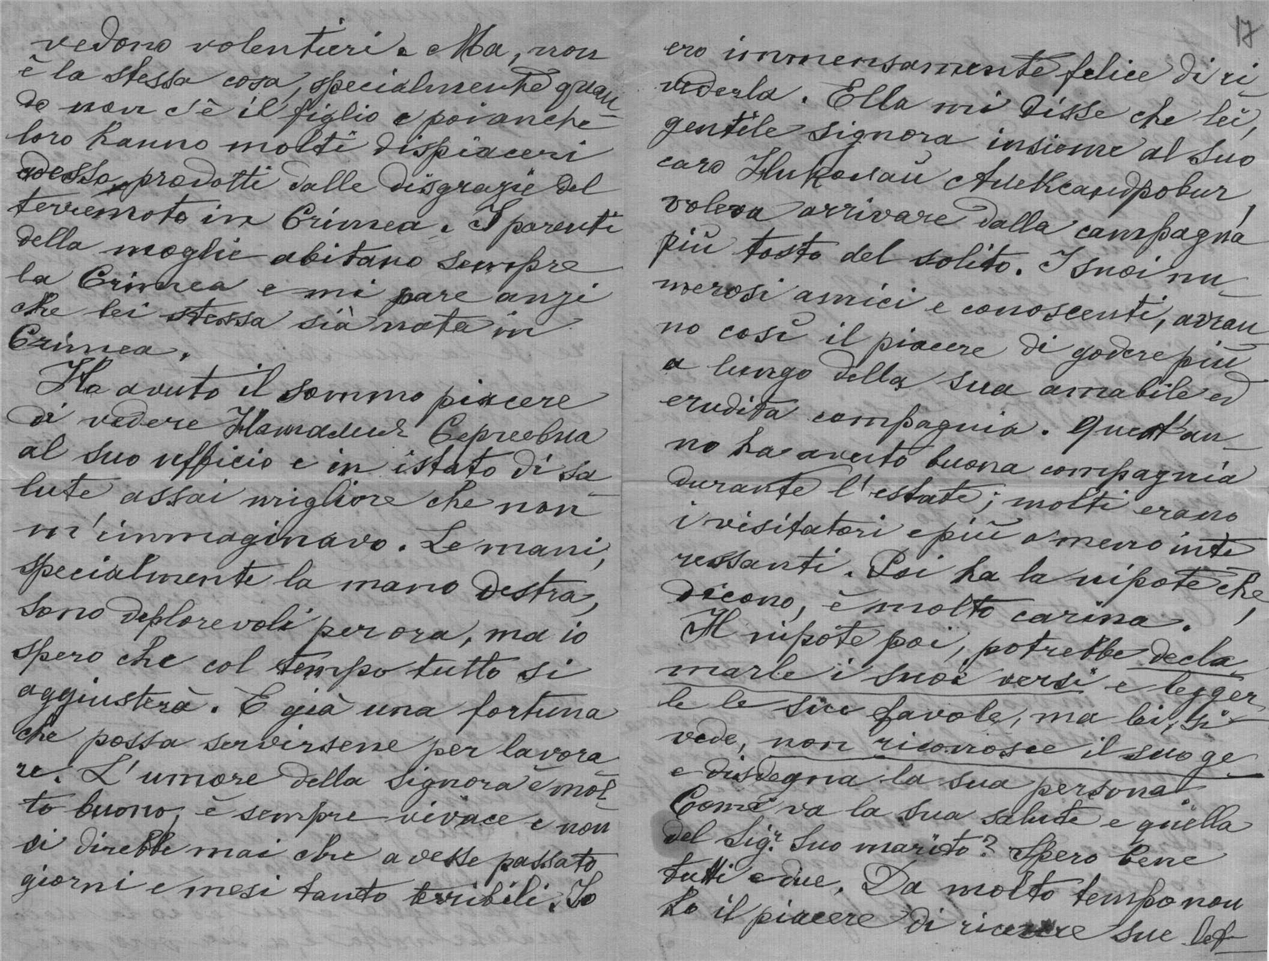 vedono volentieri. Ma, non
è la stessa cosa, specialmente quan-
do non c'è il figlio e poi anche
loro hanno molti dispiaceri
adesso, prodotti dalle disgrazie del
terremoto in Crimea. I parenti
della moglie abitano sempre
la Crimea e mi pare anzi
che lei stessa sià nata in
Crimea.
Ho avuto il sommo piacere
di vedere Сергеевна
al suo ufficio e in istato di sa-
lute assai migliore che non
m'immaginavo. Le mani,
specialmente la mano destra,
sono deplorevoli per ora, ma io
spero che col tempo tutto si
aggiusterà. È già una fortuna
che possa servirsene per lavora-
re. L'umore della signora è mol-
to buono, è sempre vivace e non
si direbbe mai che avesse passato
giorni e mesi tanto terribili. Io
17
ero immensamente felice di ri-
vederla. Ella mi disse che lei,
gentile signora insieme al suo
caro Николай Александрович,
voleva arrivare dalla campagna
più tosto del solito. I suoi nu-
merosi amici e conoscenti, avran-
no così il piacere di godere più
a lungo della sua amabile ed
erudita compagnia. Quest'an-
no ha avuto buona compagnia
durante l'estate; molti erano
i visitatori e più o meno inte
ressanti. Poi ha la nipote che,
dicono, è molto carina.
Il nipote poi, potrebbe decla
marle i suoi versi e legger
le le sue favole, ma lei, si
vede, non riconosce il suo ge-
e disdegna la sua persona
Come va la sua salute e quella
del Sigr. suo marito? Spero bene
tutti e due. Da molto tempo non
ho il piacere di ricevere sue let-